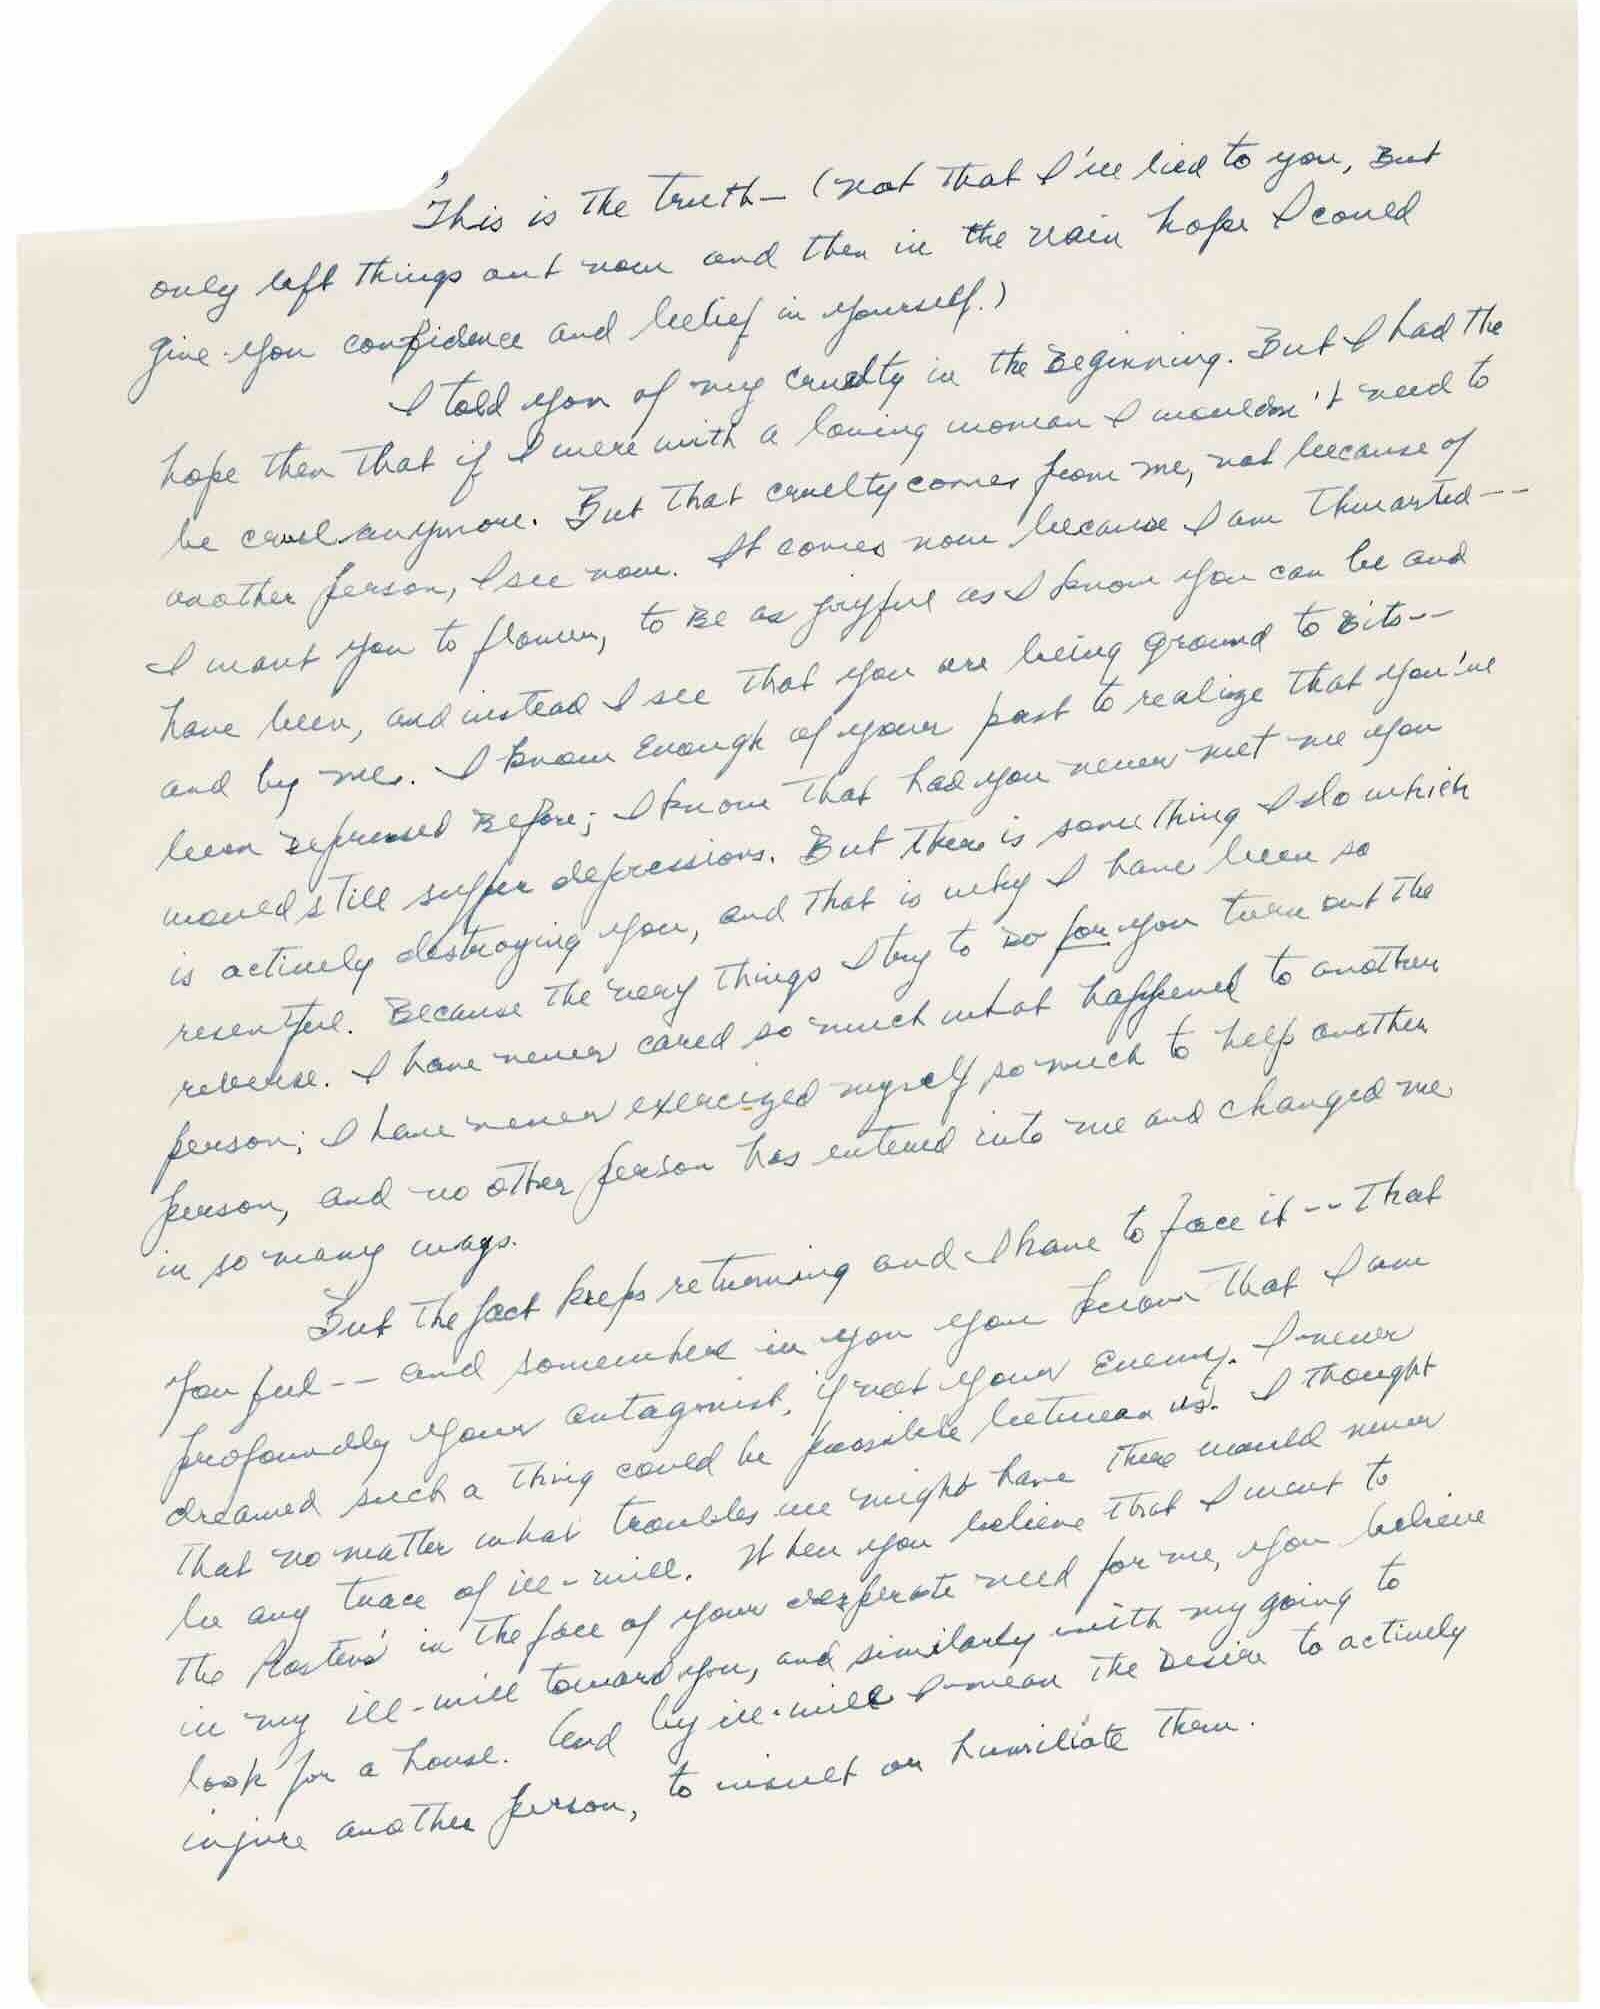 This is the truth — (not that I've lied to you, But
only left things out now and then in the vain hope I could
give you confidence and belief in yourself.)
I told you of my cruelty in the Beginning. But I had the
hope then that if I were with a loving woman I wouldn't need to
be cruel anymore. But that cruelty comes from me, not because of
another person, I see now. It comes now because I am thwarted --
I want you to flower, to Be as joyful as I know you can be and
have been, and instead I see that you are being ground to Bits --
and by me. I know Enough of your past to realize that you've
been Depressed Before; I know that had you never met me you
would still suffer depressions. But there is something I do which
is actively destroying you, and that is why I have been so
resentful. Because the very things I try to Do for you turn out the
reverse. I have never cared so much what happened to another
person; I have never exercized myself so much to help another
person, and no other person has entered into me and changed me
in so many ways.
But the fact keeps returning and I have to face it -- that
you feel -- and somewhere in you you know that I am
profoundly your antagonist, if not your Enemy. I never
dreamed such a thing could be possible between us. I thought
that no matter what troubles we might have there would never
be any trace of ill-will. When you believe that I went to
the Rostens' in the face of your desperate need for me, you believe
in my ill-will toward you, and similarly with my going to
look for a house. And by ill-will I mean the Desire to actively
injure another person, to insult or humiliate them.